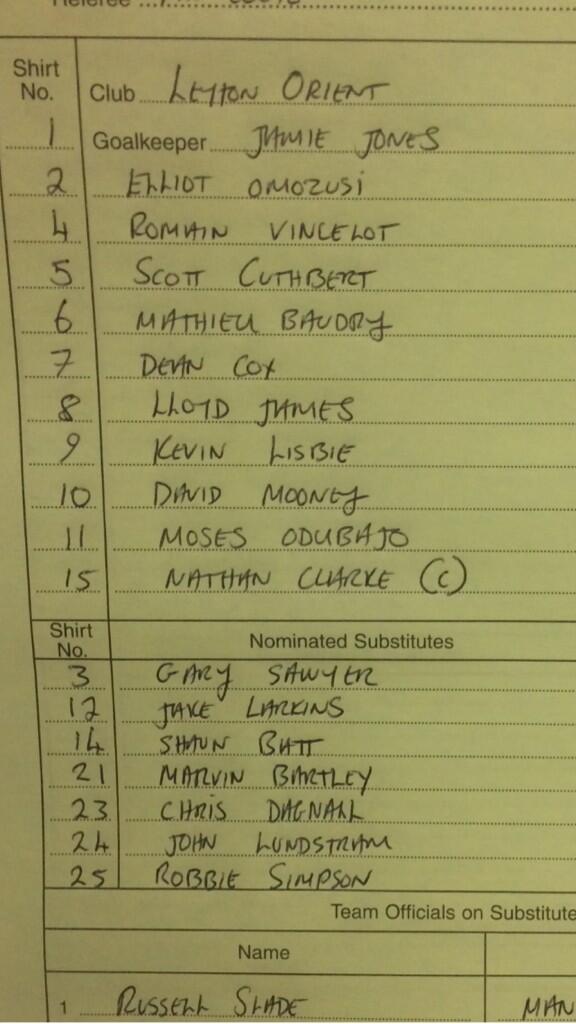 Referee
Shirt No. Club Leyton Orient
1 Goalkeeper Jamie Jones
2 Elliot Omozusi
4 Romain Vincelot
5 Scott Cuthbert
6 Mathieu Baudry
7 Dean Cox
8 Lloyd James
9 Kevin Lisbie
10 David Mooney
11 Moses Odubajo
15 Nathan Clarke (C)
Shirt No. Nominated Substitutes
3 Gary Sawyer
12 Jake Larkins
14 Shaun Batt
21 Marvin Bartley
23 Chris Dagnall
24 John Lundstram
25 Robbie Simpson
Team Officials on Substitute
Name
1 Russell Slade MAN